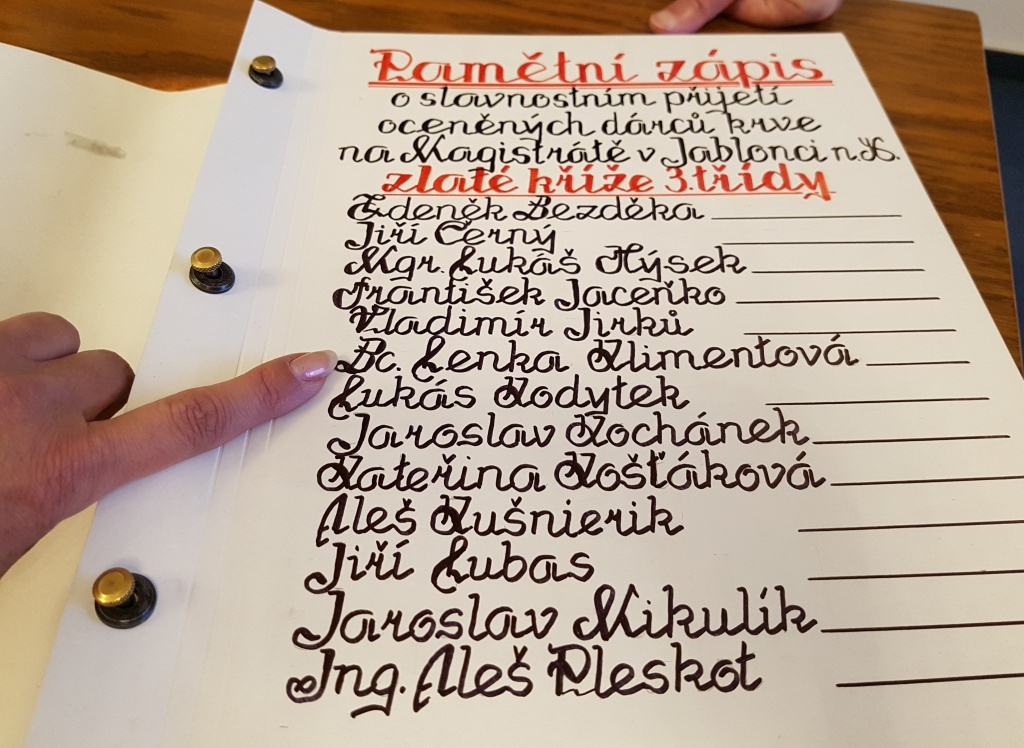 Pamětní zápis
o slavnostním přijetí
oceněných dárců krve
na Magistrátě v Jablonci n.N.
zlaté kříže 3.třídy
Zdeněk Bezděka
Jiří Černý
Mgr. Lukáš Hýsek
František Jaceňko
Vladimír Jirků
Bc. Lenka Klimentová
Lukás Kodytek
Jaroslav Kochánek
Kateřina Košťáková
Aleš Kušnierik
Jiří Lubas
Jaroslav Mikulík
Ing. Aleš Pleskot